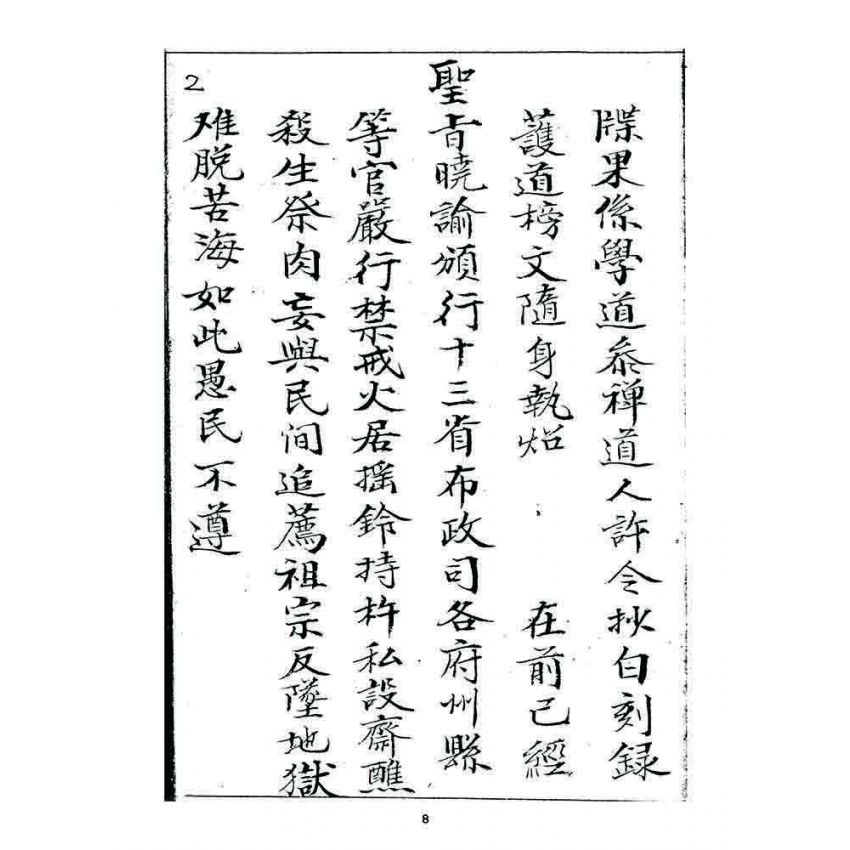 牒果係學道叅禅道人許令抄白刻録
護道榜文隨身執炤 在前已經
聖旨曉諭頒行十三省布政司各府州縣
等官嚴行禁戒火居摇鈴持杵私設齋醮
殺生祭肉妄與民间追薦祖宗反墜地獄
难脱苦海如此愚民不遵
2
8